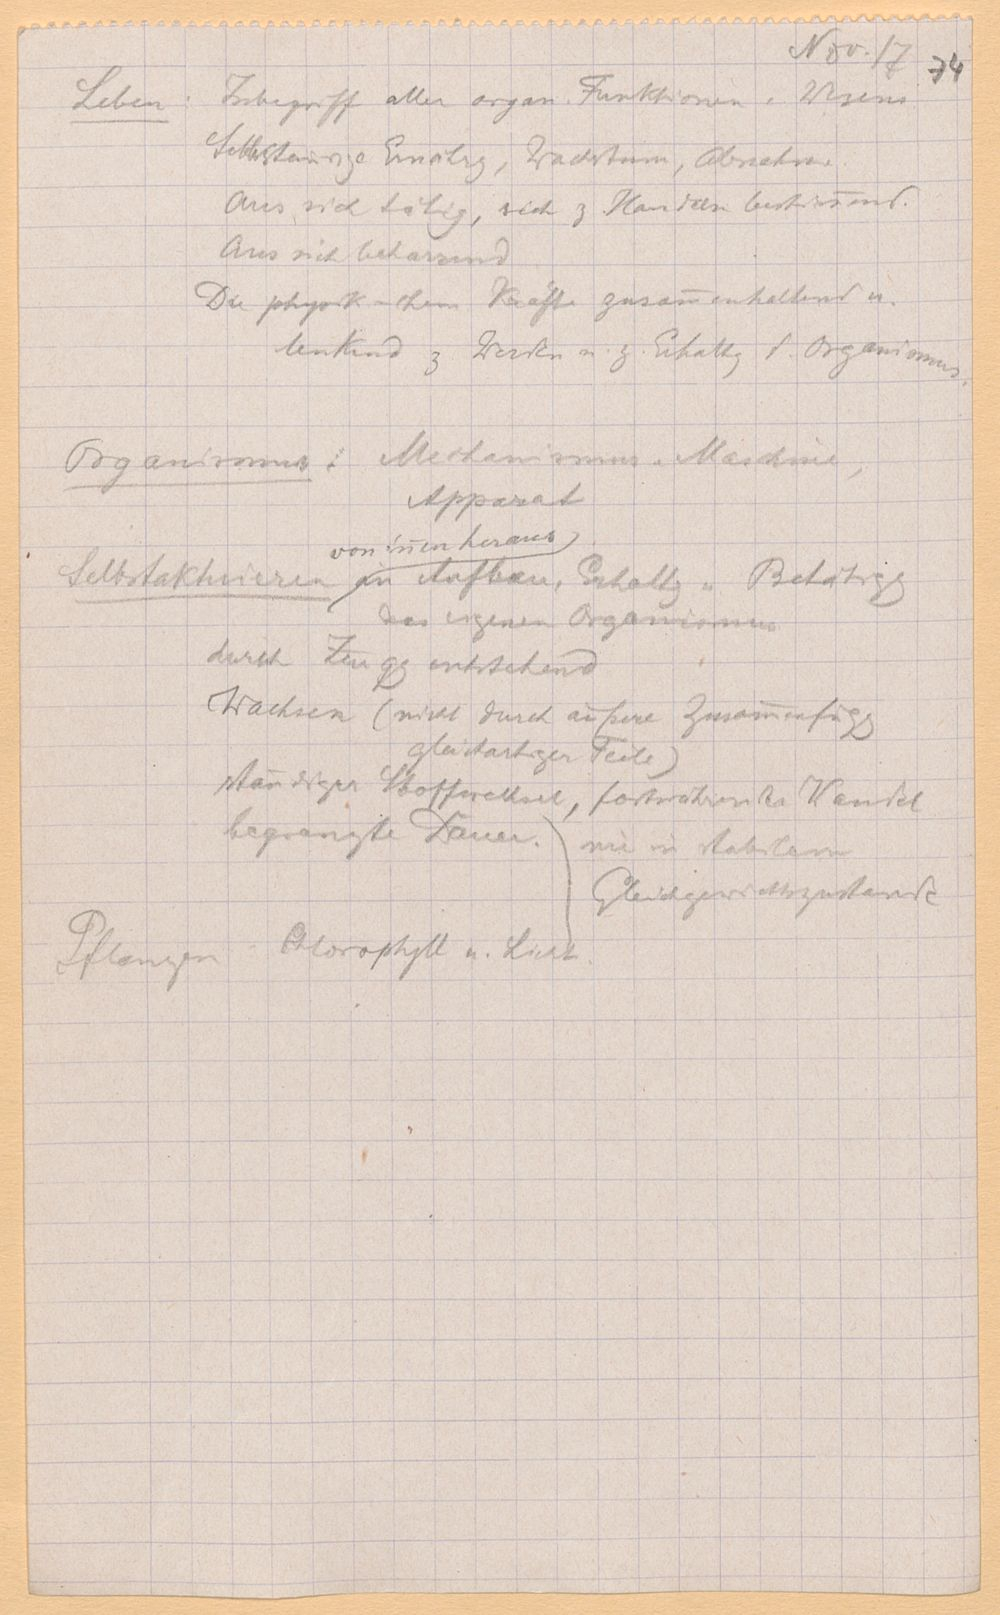 Nov. 17 74
Leben: Inbegriff aller organ. Funktionen e. Wesens
Selbsttätige Ernährg, Wachstum, Abnahme.
Aus sich tätig, sich z. Handeln bestim̅end.
Aus sich beharrend
Die physik-chem Kräfte zusam̅enhaltend u.
lenkend z. Werden u. z. Erhaltg d. Organismus.
Organismus: Mechanismus. Maschine,
Apparat
von in̅en heraus
Selbstaktivieren in Aufbau, Erhaltg u. Betätigg
des eigenen Organismus
durch Zeugg entstehend
Wachsen (nicht durch äußere Zusam̅enfügg
gleichartiger Teile)
ständiger Stoffwechsel, fortwährender Wandel
begrenzte Dauer. nie in stabilem
Gleichgewichtszustande
Pflanzen Chlorophyll u. Licht.